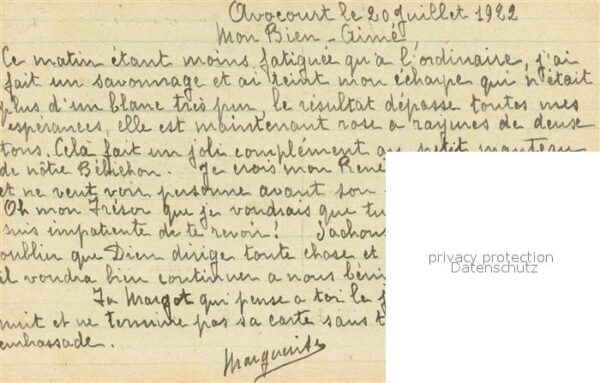 Avocourt le 20 Juillet 1922
Mon Bien-Aimé
Ce matin étant moins fatiguée qu'a l'ordinaire, j'ai
fait un savonnage et ai teint mon écharpe qui n'était
plus d'un blanc très pur, le résultat dépasse toutes mes
espérances, elle est maintenant rose a rayures de deux
tons. Cela fait un joli complément au petit manteau
de nôtre Je crois mon René
et ne veut voir personne avant son
Oh mon Trésor que je voudrais que tu
suis impatiente de te revoir!
oublier que Dieu dirige toute chose et
il voudra bien continuer a nous
Ta Margot qui pense a toi le
nuit et ne termine pas sa carte sans
embrassade.
Marguerite
privacy protection
Datenschutz